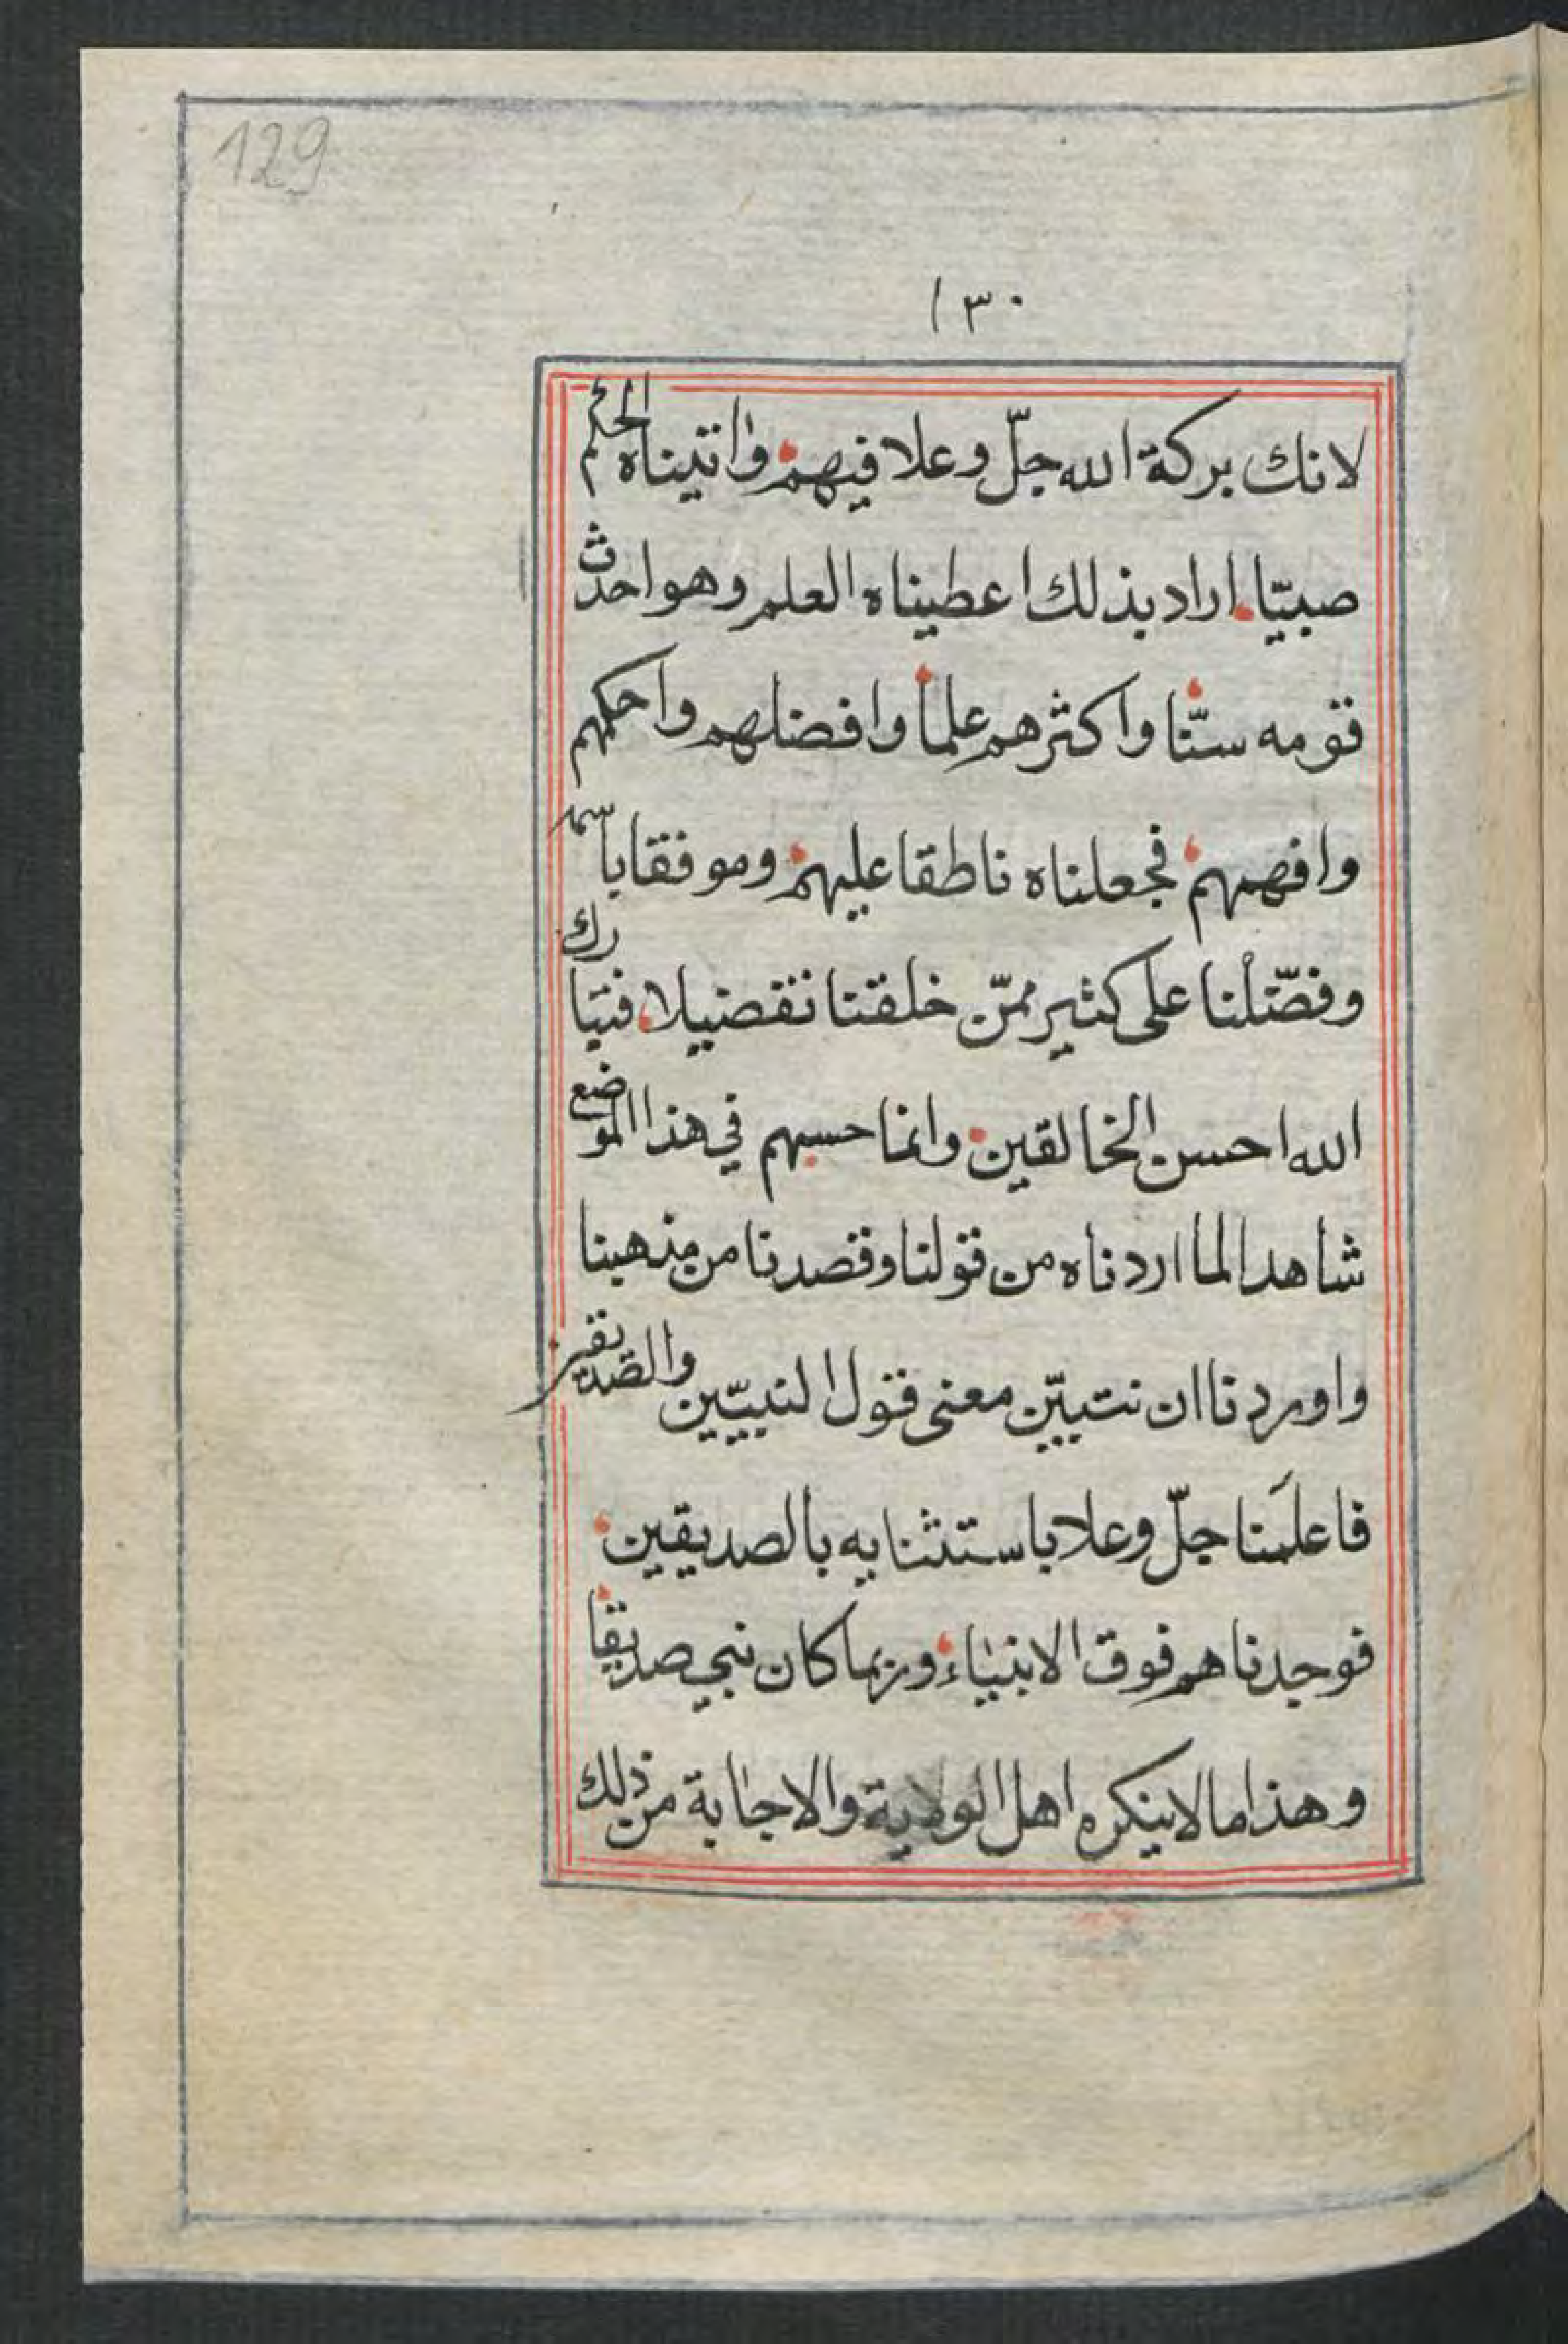 129
١٣٠
لانك بركة الله جلّ وعلا فيهم واتيناه الحكم
صبيّا اراد بذلك اعطيناه العلم وهو احدث
قومه سنّا واكثرهم علما وافضلهم واحكمهم
وافهمهم فجعلناه ناطقا عليهم وموفقا باسما
وفضّلنا على كثير ممّن خلقنا تفضيلا فتبارك
الله احسن الخالقين وانما حسبهم في هذا الموضع
شاهدا لما اردناه من قولنا وقصدنا من مذهبنا
واوردنا ان نتبيّن معنى قول النبيّين والصّديقين
فاعلمنا جلّ وعلا باستثنايه بالصديقين
فوجدناهم فوق الانبياء وربما كان نبي صديقا
وهذا ما لا ينكره اهل الولاية والاجابة من ذلك